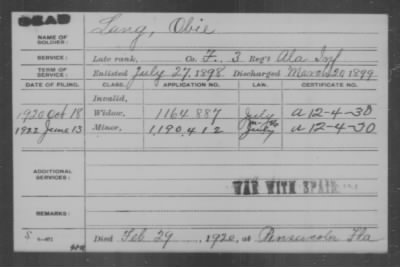 DEAD
NAME OF SOLDIER: Lang, Obie
SERVICE: Late rank, Co. F, 3 Reg't Ala Inf
TERM OF SERVICE: Enlisted July 27, 1898 Discharged March 20, 1899
DATE OF FILING. CLASS. APPLICATION NO. LAW. CERTIFICATE NO.
Invalid,
1920 Oct 18 Widow, 1164.887 July a 12-4-30
1922 June 13 Minor, 1,190,412 July a 12-4-30
ADDITIONAL SERVICES:
WAR WITH SPAIN
REMARKS:
Died Feb 29, 1920, at Pensacola Fla